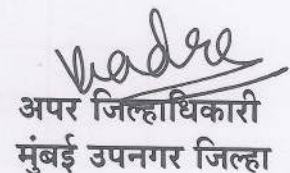 अपर जिल्हाधिकारी
मुंबई उपनगर जिल्हा